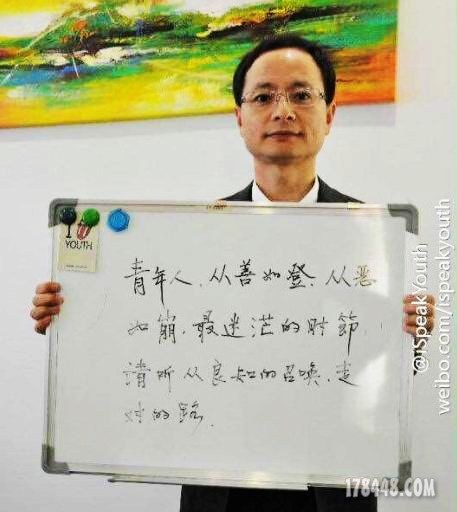 I
YOUTH
青年人，从善如登，从恶
如崩，最迷茫的时节，
请听从良知的召唤，走
对的路。
@iSpeakYouth
weibo.com/ispeakyouth
178448.COM